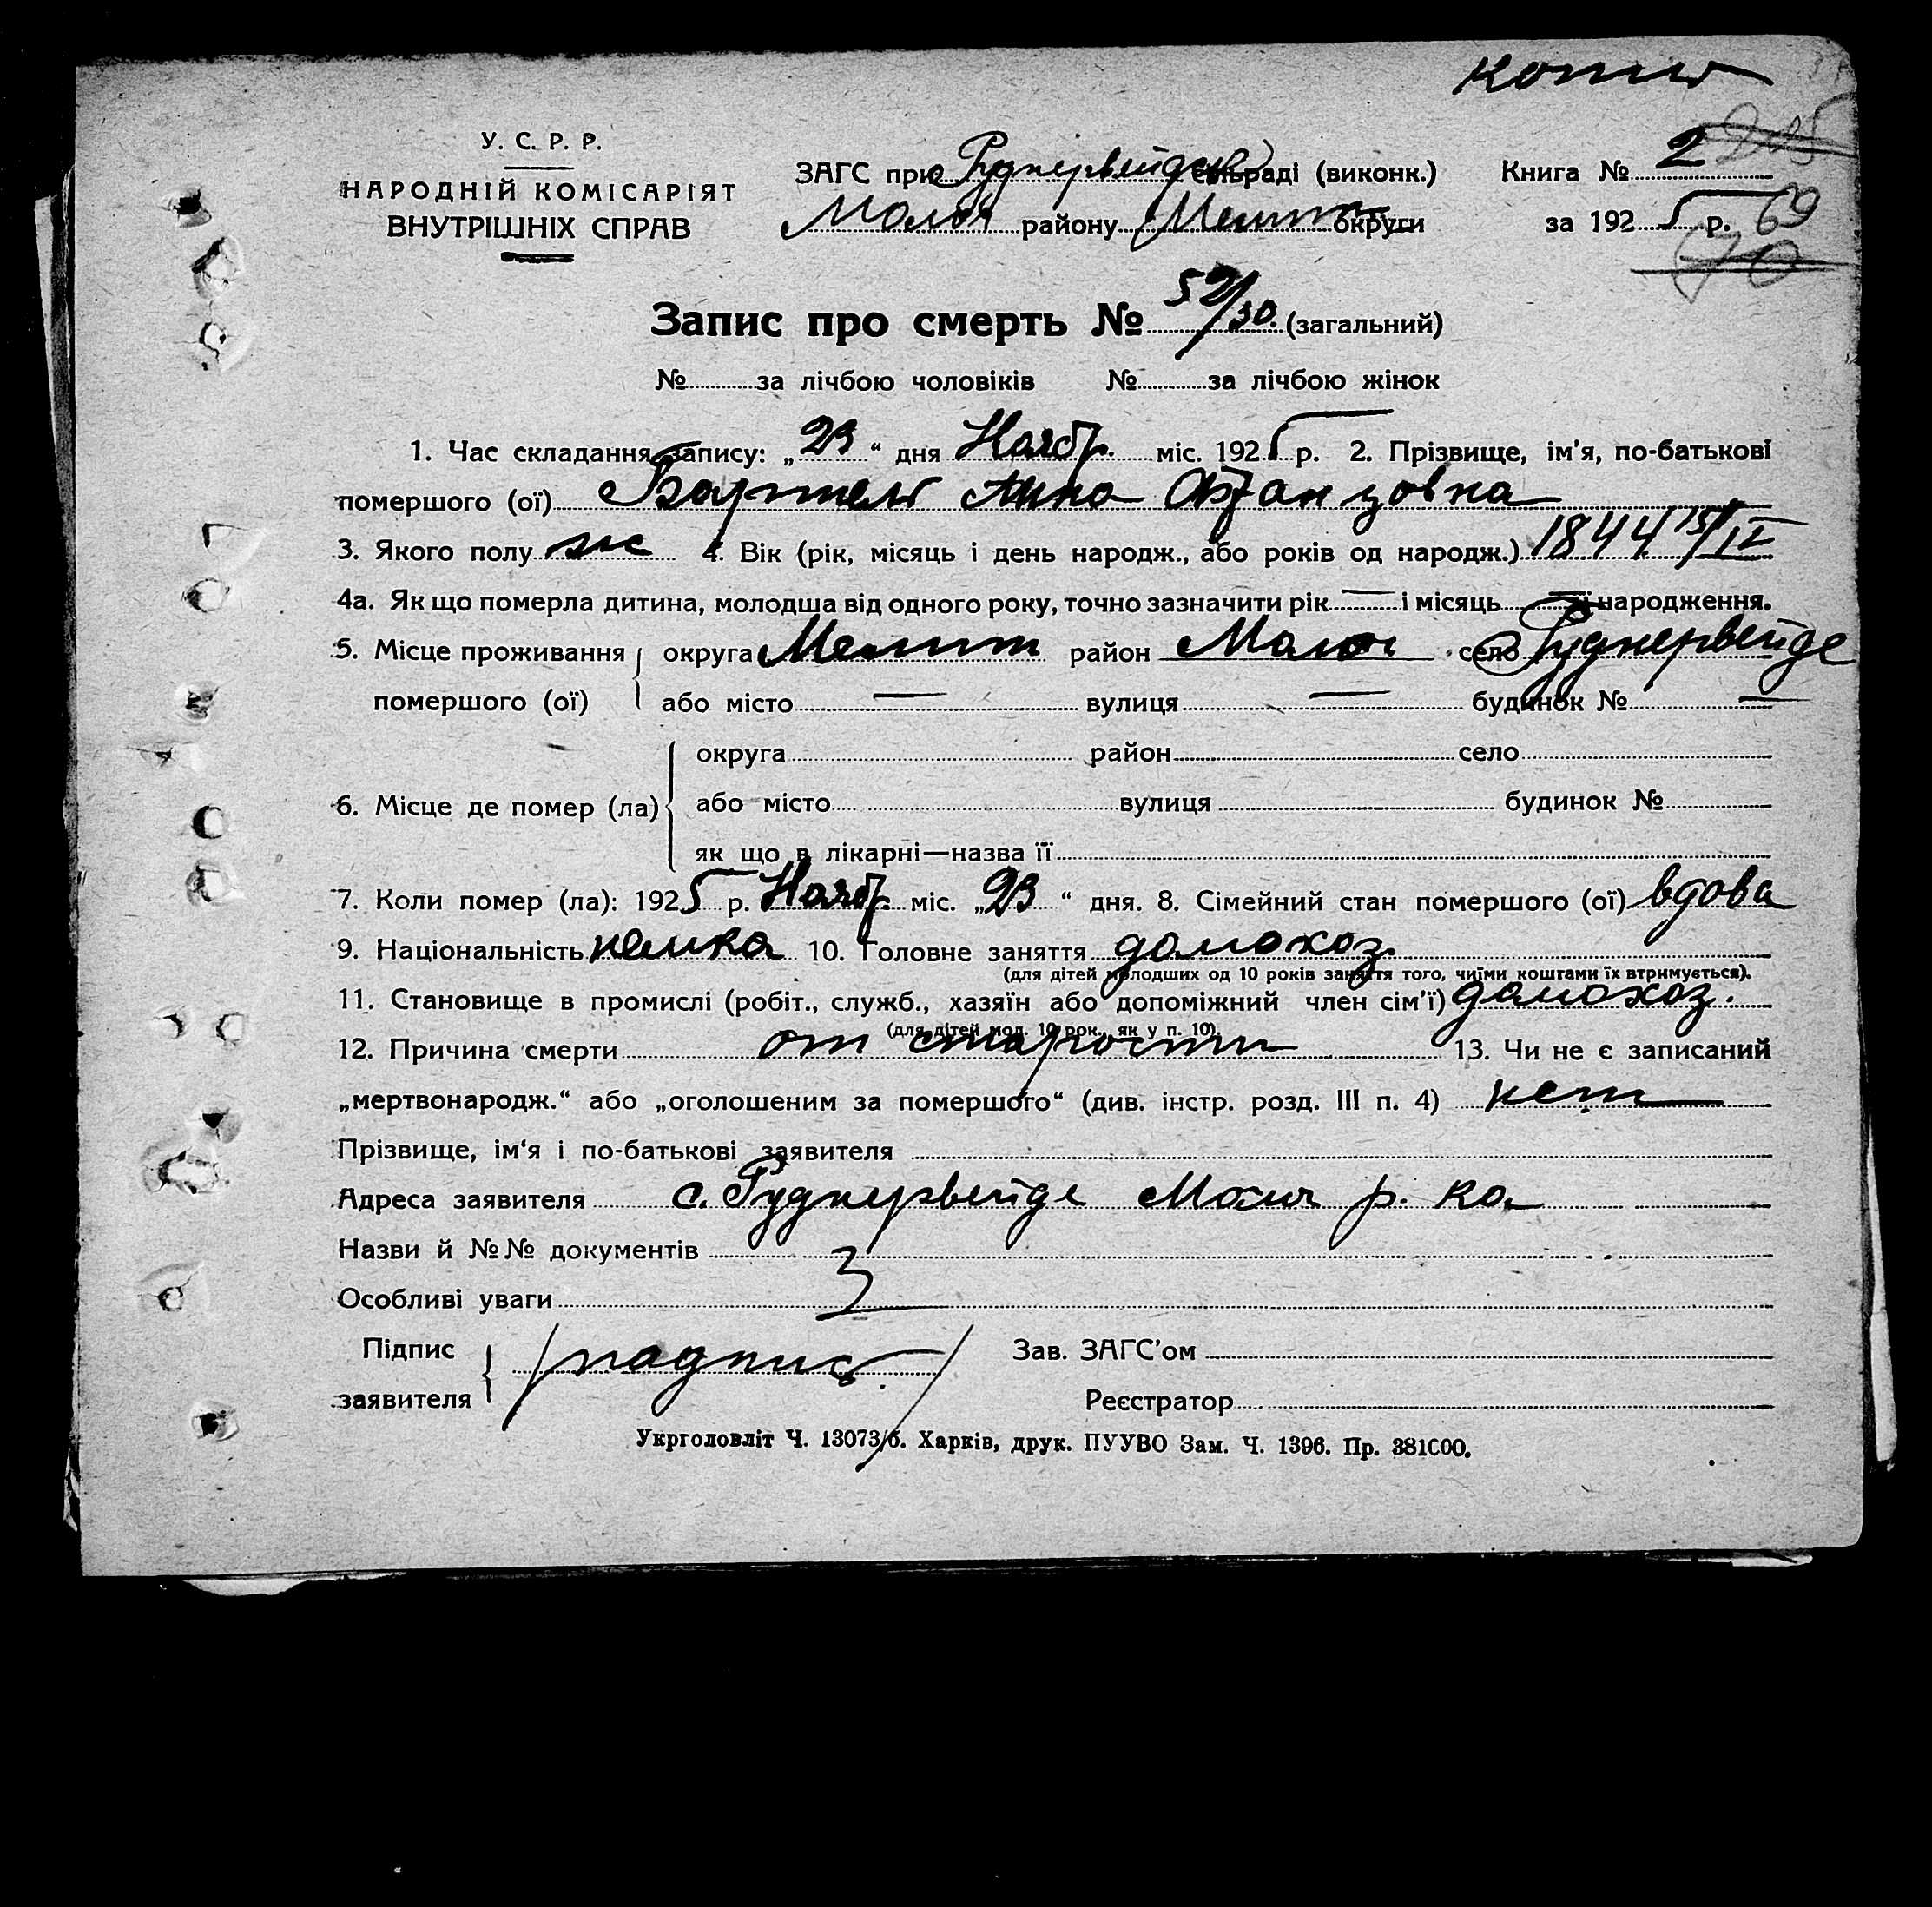 копия
У. С. Р. Р.
НАРОДНІЙ КОМІСАРІЯТ
ВНУТРІШНІХ СПРАВ
ЗАГС при Руднервейдск сільраді (виконк.) Книга № 2
Молоч району Мелит округи за 1925 р. 69
Запис про смерть № 52/30. (загальний)
№ за лічбою чоловіків № за лічбою жінок
1. Час складання запису: „23“ дня Ноябр. міс. 1925 р. 2. Прізвище, ім'я, по-батькові
помершого (ої) Бартель Анна
3. Якого полу ж 4. Вік (рік, місяць і день народж., або років од народж.) 1844 15/IV
4а. Як що померла дитина, молодша від одного року, точно зазначити рік — і місяць — її народження.
5. Місце проживання округа Мелит район Молоч село Руднервейде
помершого (ої) або місто — вулиця — будинок № —
округа район село
6. Місце де помер (ла) або місто вулиця будинок №
як що в лікарні—назва її
7. Коли помер (ла): 1925 р. Ноябр. міс. „23“ дня. 8. Сімейний стан помершого (ої) вдова
9. Національність немка 10. Головне заняття домохоз.
(для дітей молодших од 10 років заняття того, чиїми коштами їх втримується).
11. Становище в промислі (робіт., служб., хазяїн або допоміжний член сім'ї) домохоз.
(для дітей мол. 10 рок., як у п. 10).
12. Причина смерти от старости 13. Чи не є записаний
„мертвонародж.“ або „оголошеним за помершого“ (див. інстр. розд. III п. 4) нет
Прізвище, ім‘я і по-батькові заявителя
Адреса заявителя с. Руднервейде Молоч р. на
Назви й №№ документів
Особливі уваги
Підпис
заявителя /подпис/
Зав. ЗАГС'ом
Реєстратор
Укрголовліт Ч. 13073/б. Харків, друк. ПУУВО Зам. Ч. 1396. Пр. 381000.